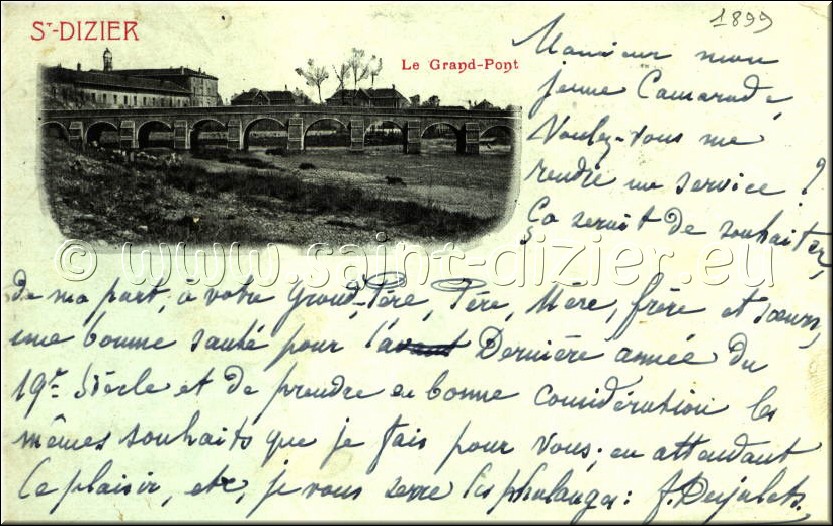 1899
ST-DIZIER
Le Grand-Pont
Monsieur mon
jeune Camarade,
Voulez-vous me
rendre un service ?
Ça serait de souhaiter,
© www.saint-dizier.eu
de ma part, à votre Grand-Père, Père, Mère, frère et sœurs,
une bonne santé pour l'avant Dernière année du
19e Siècle et de prendre en bonne considération les
mêmes souhaits que je fais pour vous; en attendant
le plaisir, etc, je vous serre les phalanges: f.